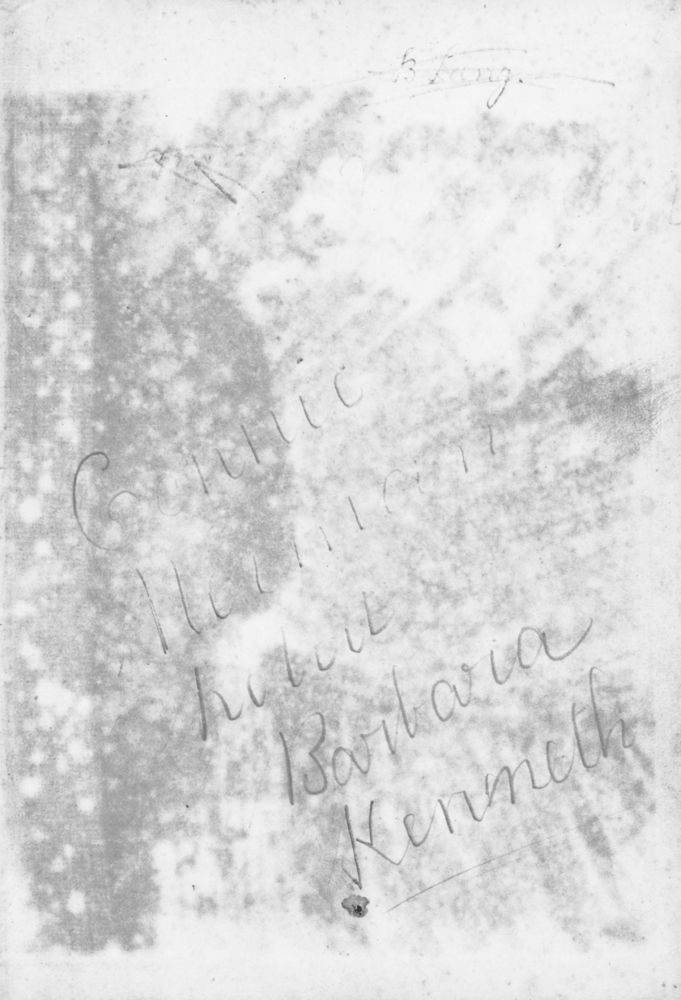 B Lang.
Connie
Herman
Robert
Barbara
Kenneth